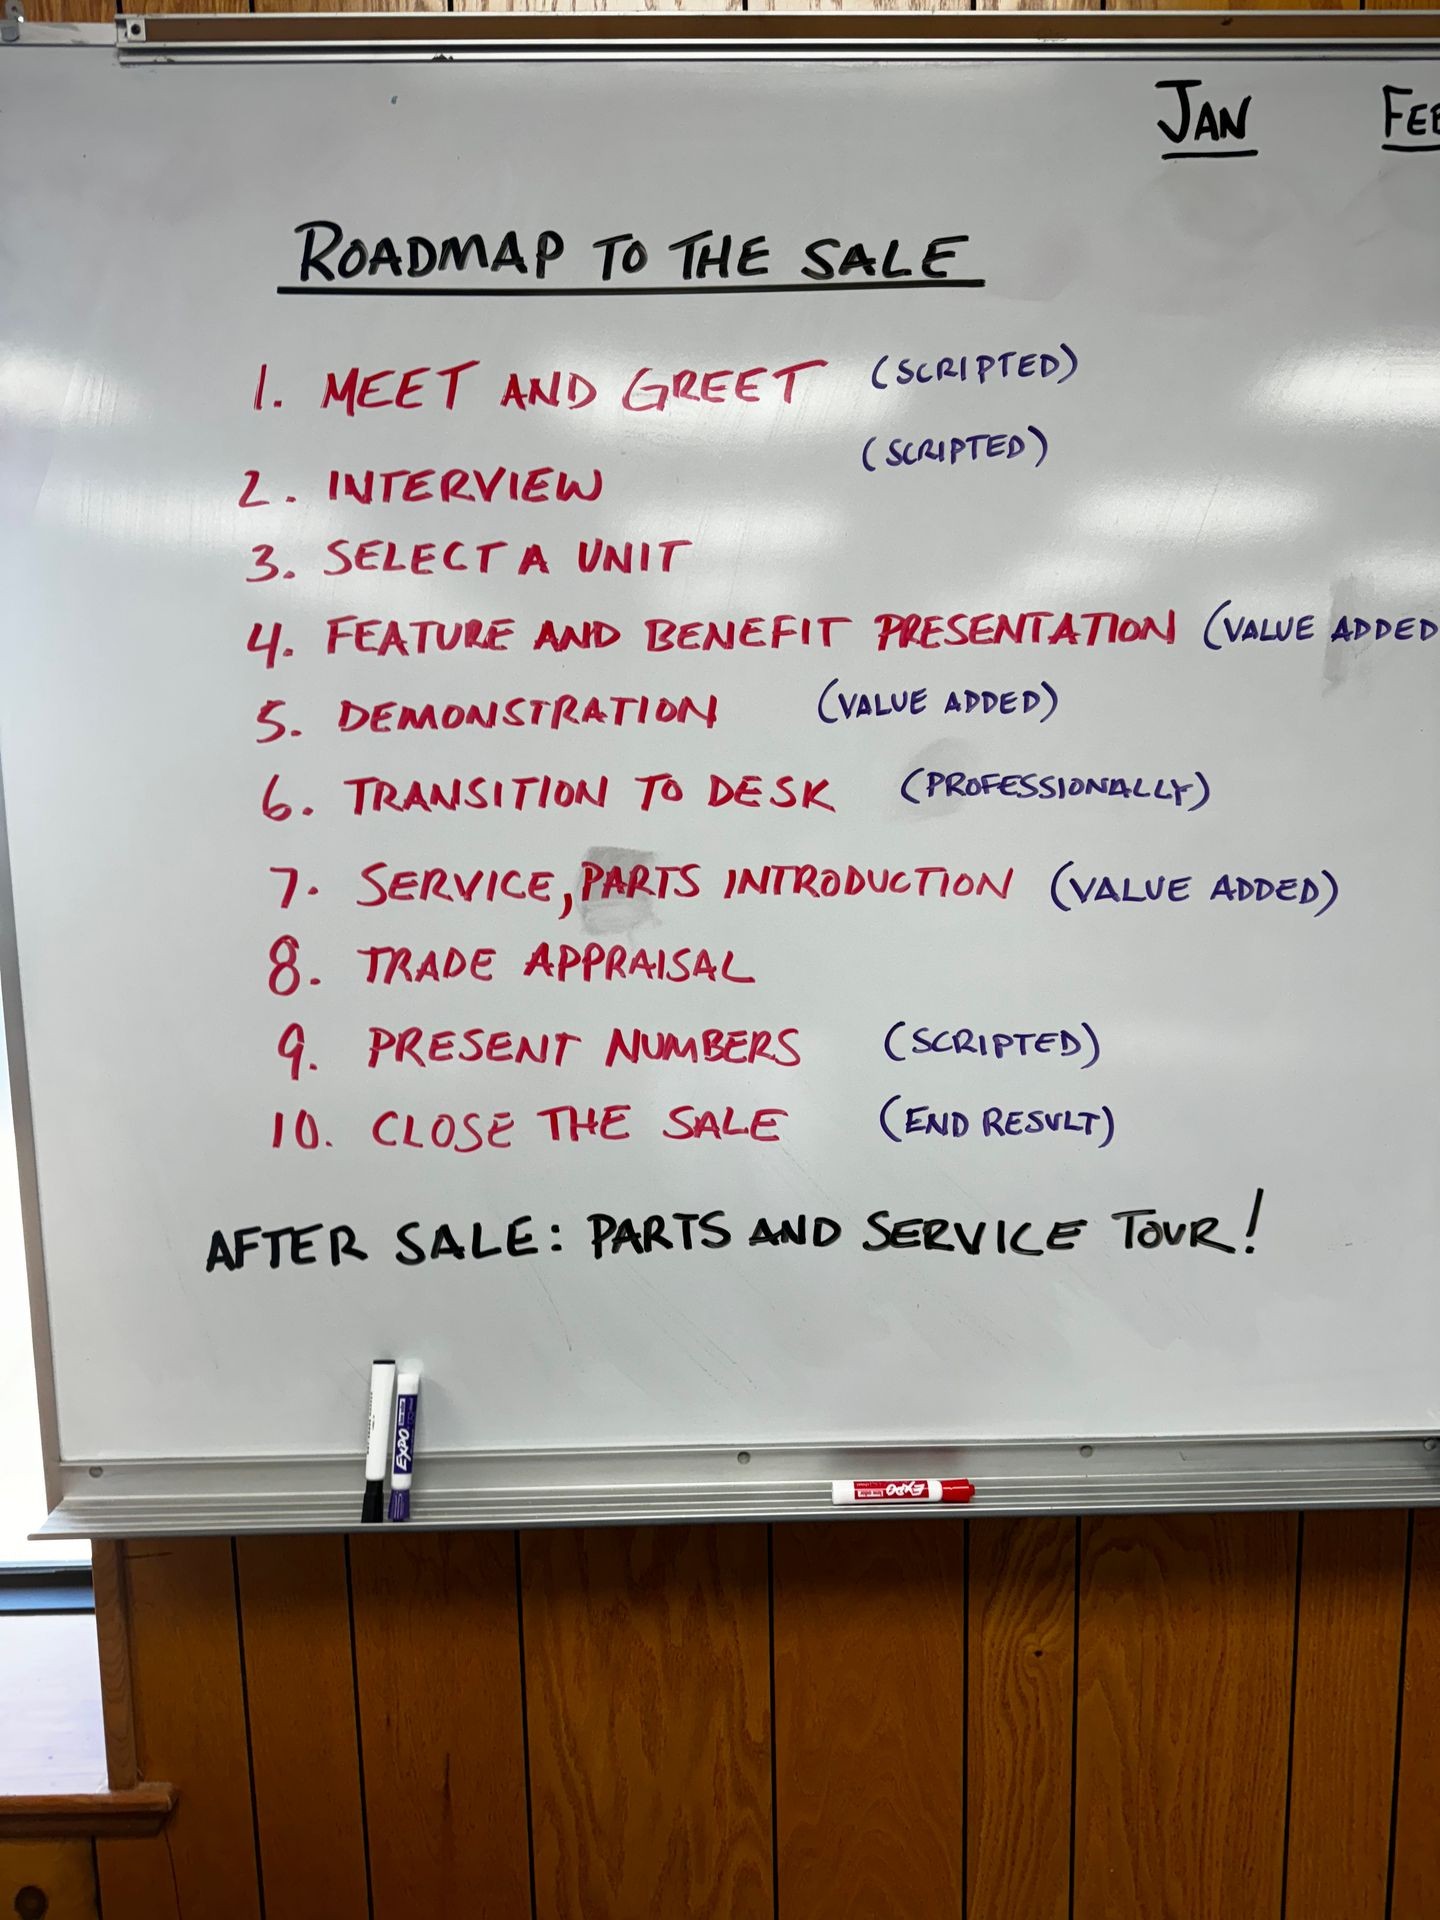 JAN FEB
ROADMAP TO THE SALE
1. MEET AND GREET (SCRIPTED)
(SCRIPTED)
2. INTERVIEW
3. SELECT A UNIT
4. FEATURE AND BENEFIT PRESENTATION (VALUE ADDED
5. DEMONSTRATION (VALUE ADDED)
6. TRANSITION TO DESK (PROFESSIONALLY)
7. SERVICE, PARTS INTRODUCTION (VALUE ADDED)
8. TRADE APPRAISAL
9. PRESENT NUMBERS (SCRIPTED)
10. CLOSE THE SALE (END RESULT)
AFTER SALE: PARTS AND SERVICE TOUR!
EXPO
EXPO